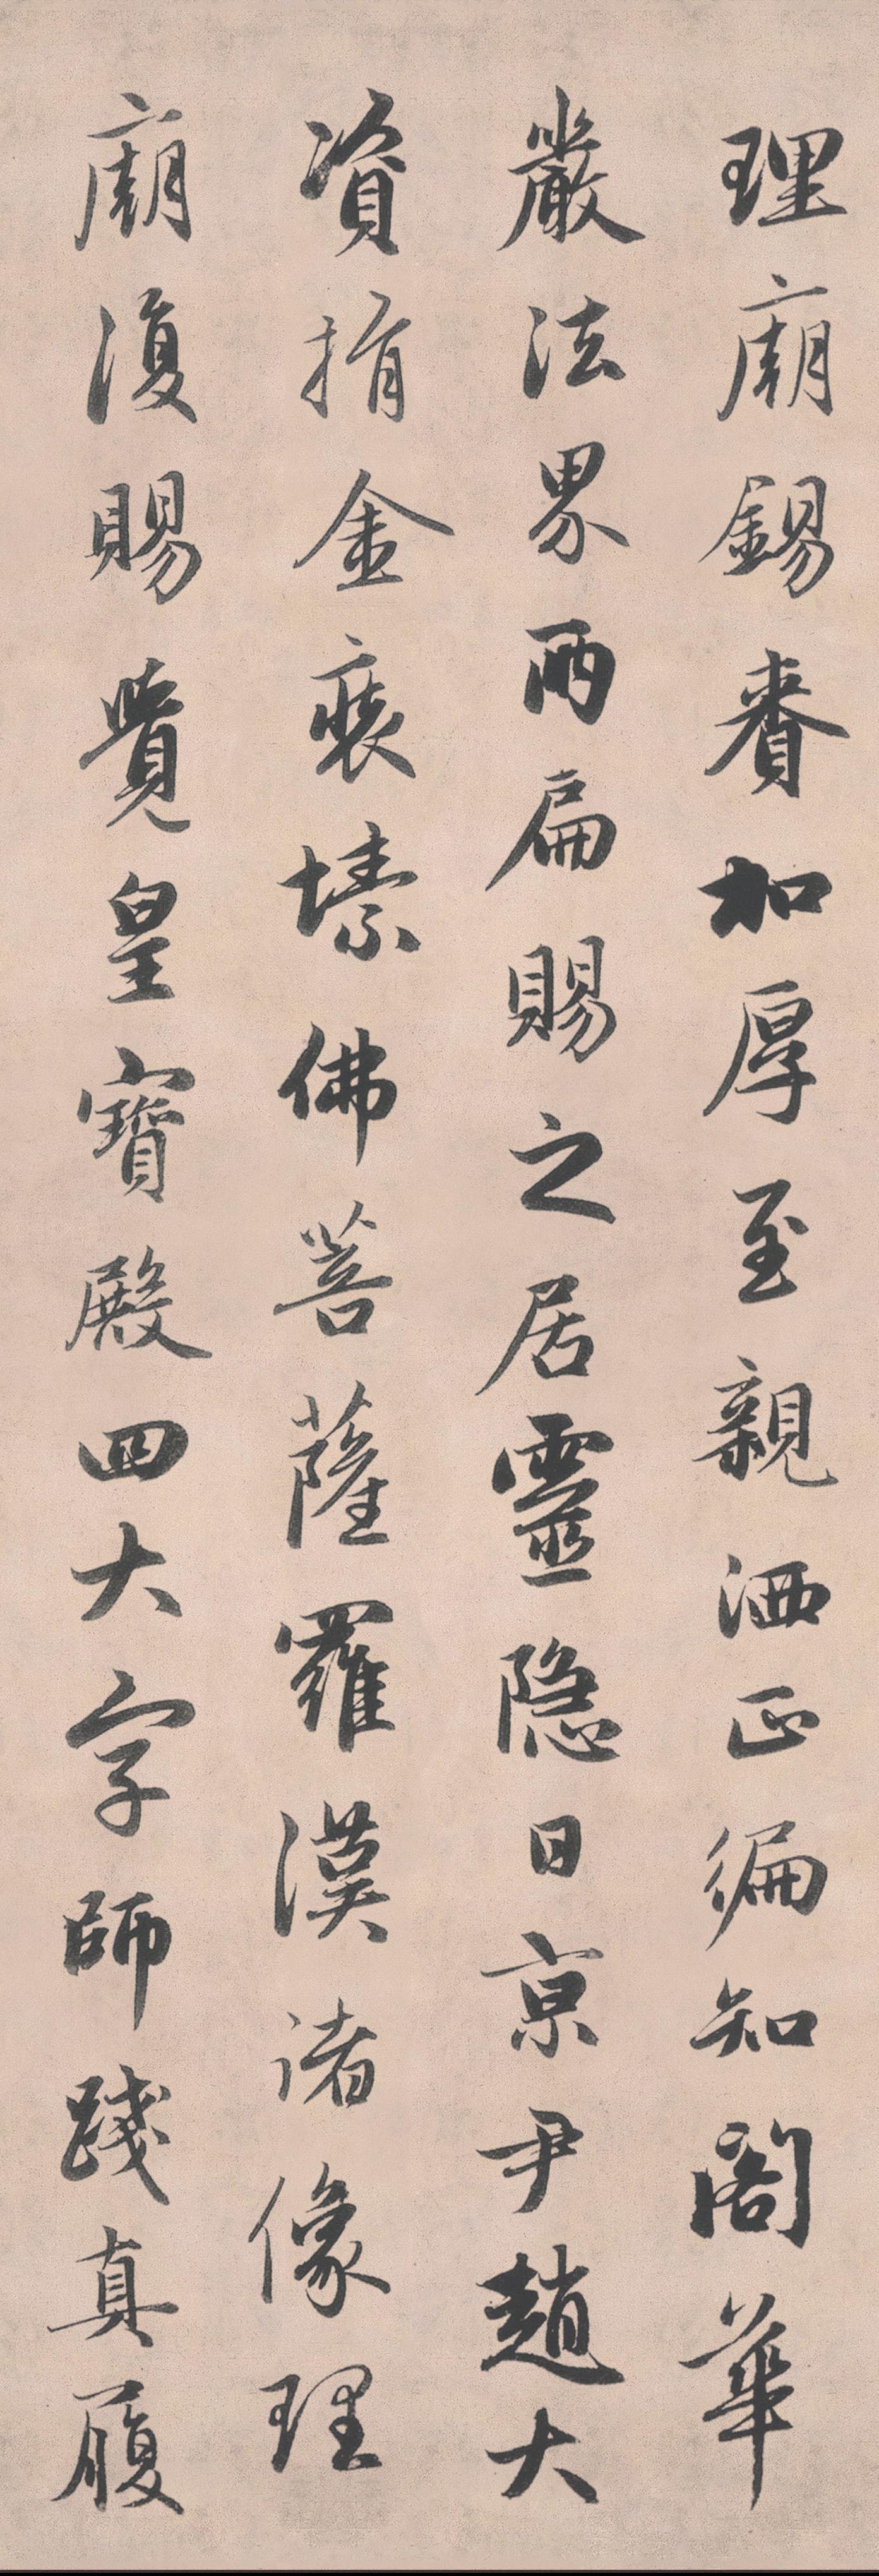 理廟錫賚加厚至親洒正徧知閣華
嚴法界兩扁賜之居靈隐日京尹趙大
資捐金裝塐佛菩薩羅漢諸像理
廟復賜覺皇寶殿四大字師踐真履